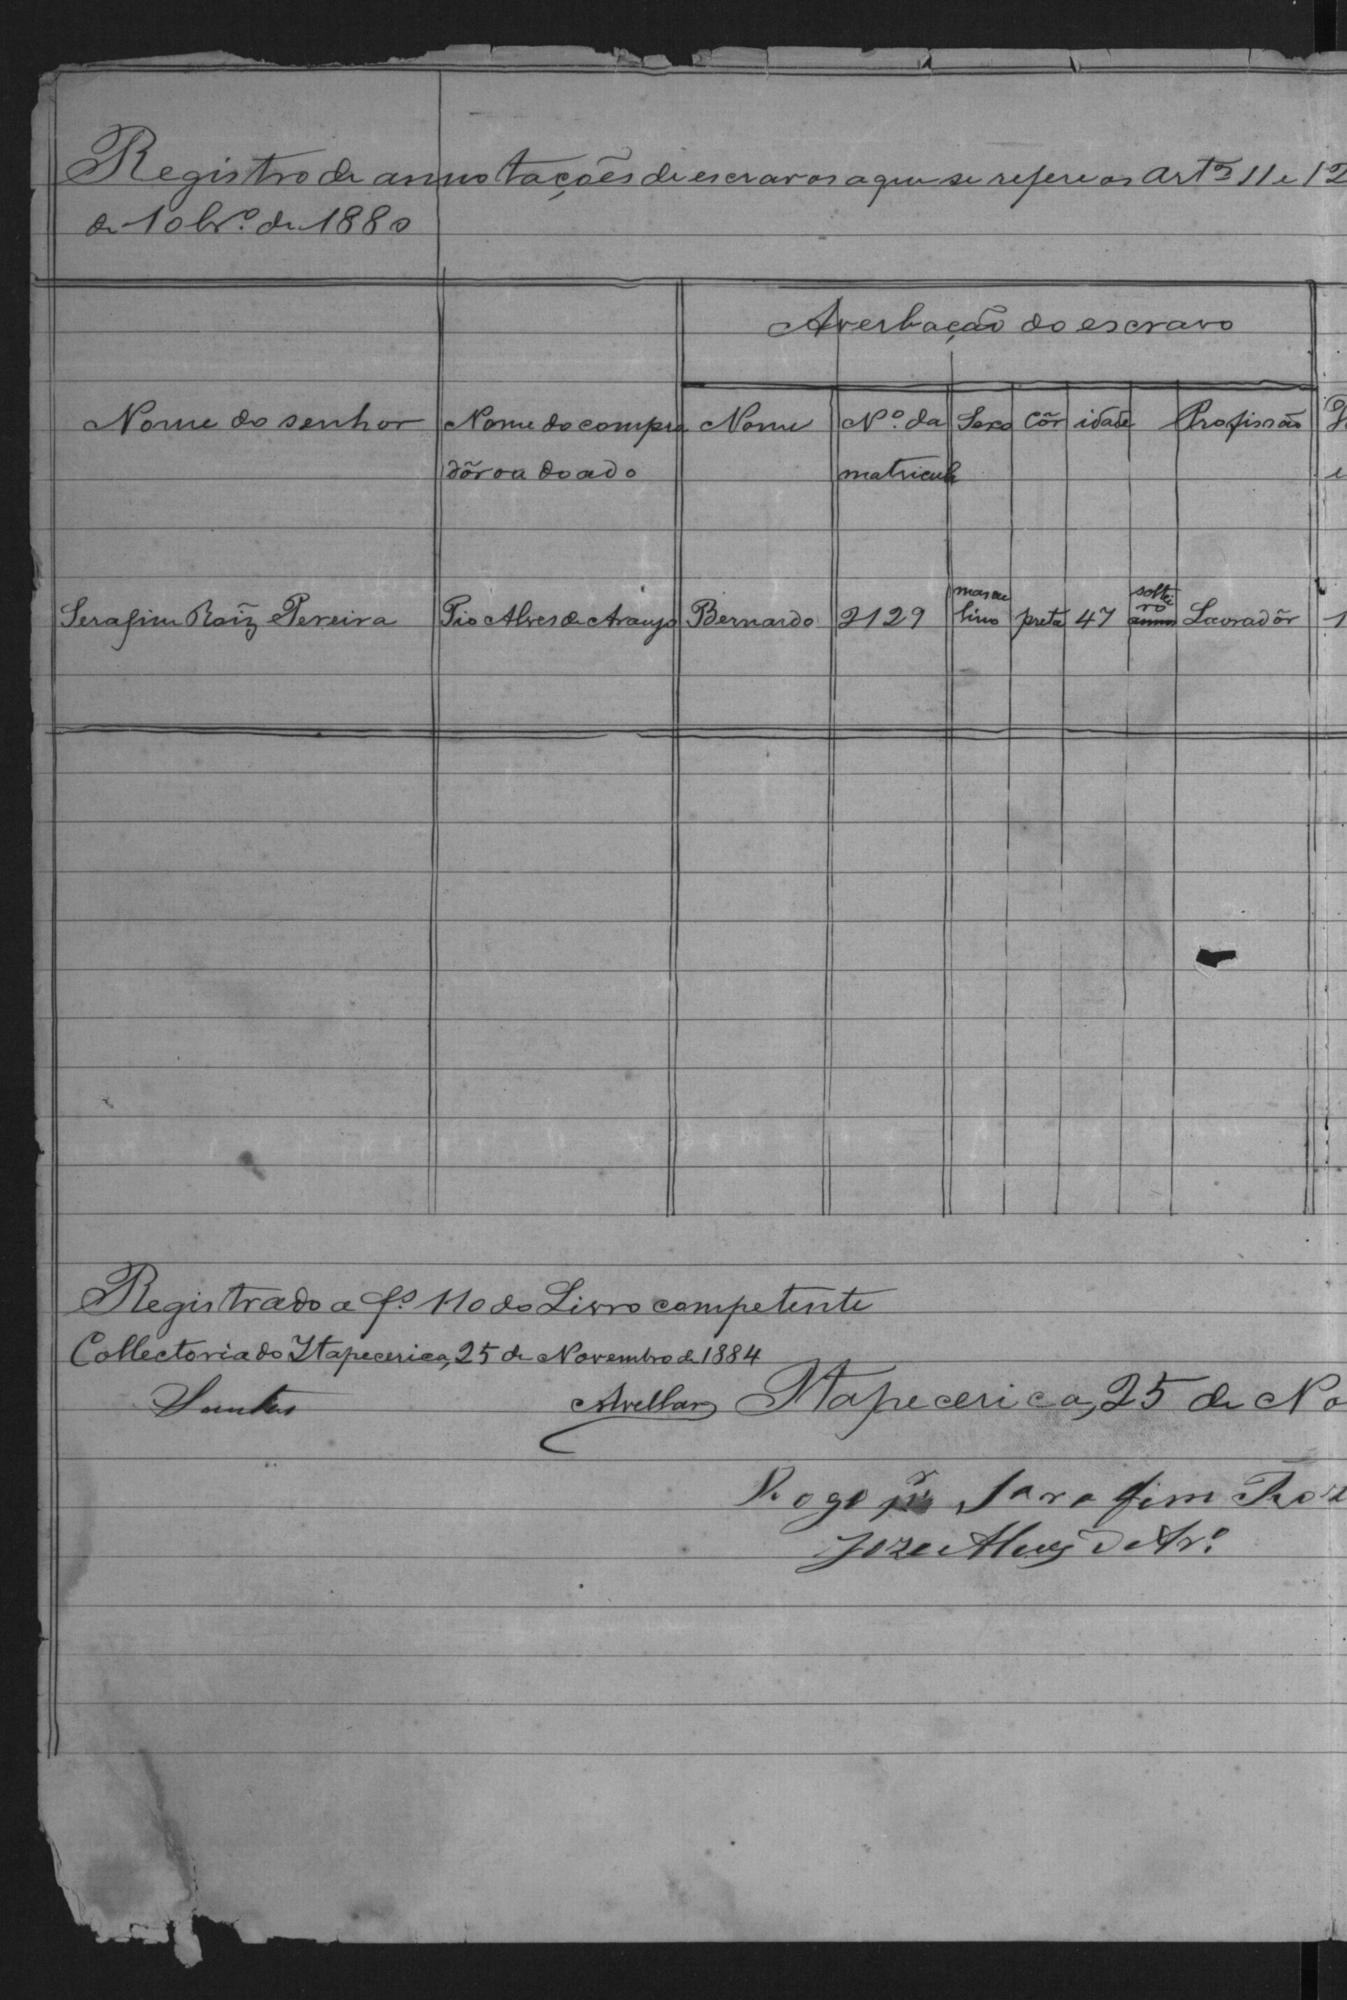 Registro de annotações de escravos a que se refere os Artºs 11 e 12
de 10br.º de 1880
Averbação do escravo
Nome do senhor Nome do compra Nome Nº. da Sexo Côr idade Profissão
dôr oa doado matricula
Serafim Roiz Pereira Pio Alves de Araujo Bernardo 2129 mascu lino preta 47 soltei ro annos Lavradôr 1
Registrado a fs. 110 do Livro competente
Collectoria do Itapecerica, 25 de Novembro de 1884
Santos Avellar Itapecerica, 25 de No
A rogo Sarafim
Joze Alves d Ar.º